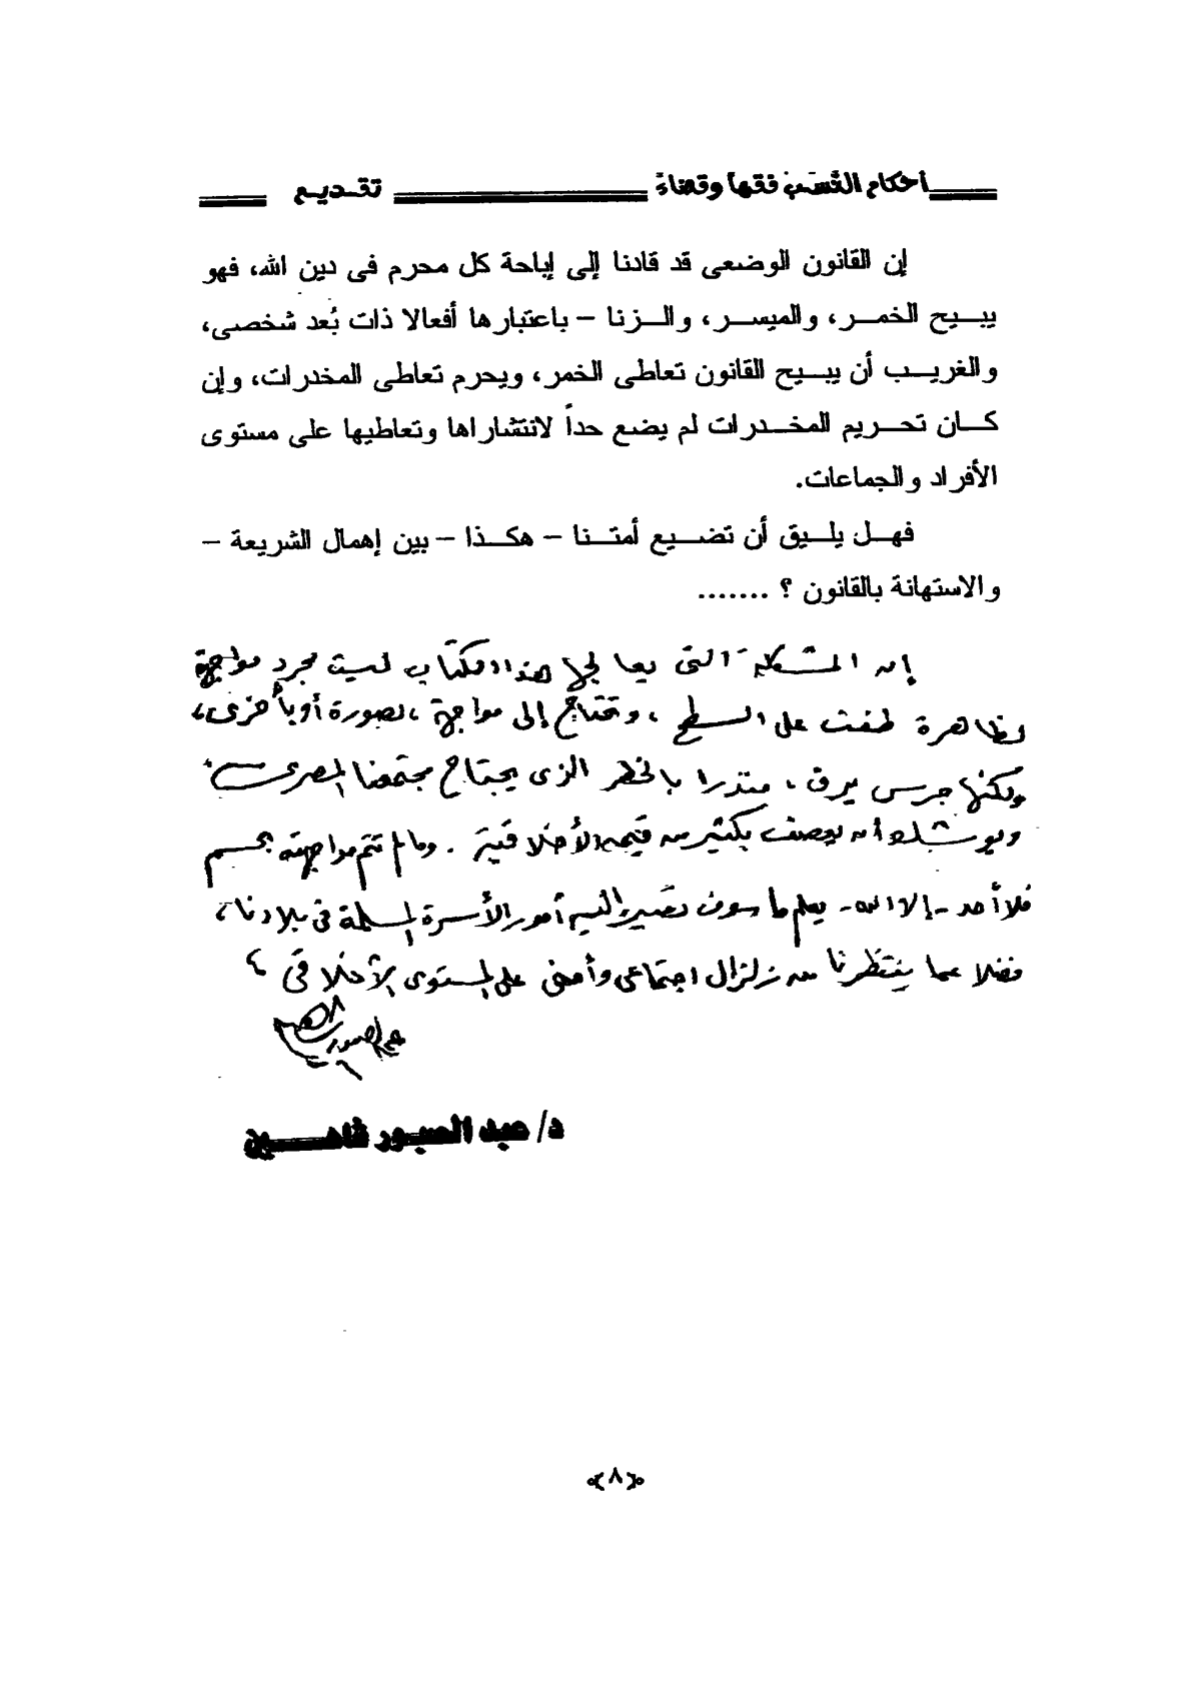 أحكام النسب فقهاً وقضاءً
تقديم
إن القانون الوضعى قد قادنا إلى إباحة كل محرم فى دين الله، فهو
يبيح الخمر، والميسر، والزنا – باعتبارها أفعالا ذات بُعد شخصى،
والغريب أن يبيح القانون تعاطى الخمر، ويحرم تعاطى المخدرات، وإن
كان تحريم المخدرات لم يضع حداً لانتشاراها وتعاطيها على مستوى
الأفراد والجماعات.
فهل يليق أن تضيع أمتنا – هكذا – بين إهمال الشريعة –
والاستهانة بالقانون ؟ .......
إن المشكلة التى يعالجها هذا الكتاب ليست مجرد مواجهة
لظاهرة طفت على السطح ، وتحتاج إلى مواجهة ، بصورة أو بأخرى،
ولكنها جرس يدق ، منذرا بالخطر الذى يجتاح مجتمعنا المصرى
ويوشك أن يعصف بكثير من قيمه الأخلاقية . وما لم تتم مواجهته بحسم
فلا أحد - إلا الله - يعلم ما سوف تصير إليه أمور الأسرة المسلمة فى بلادنا ،
فضلا عما ينتظرنا من زلزال اجتماعى وأمنى على المستوى الأخلاقى ،
د/ عبد الصبور شاهين
﴿٨﴾